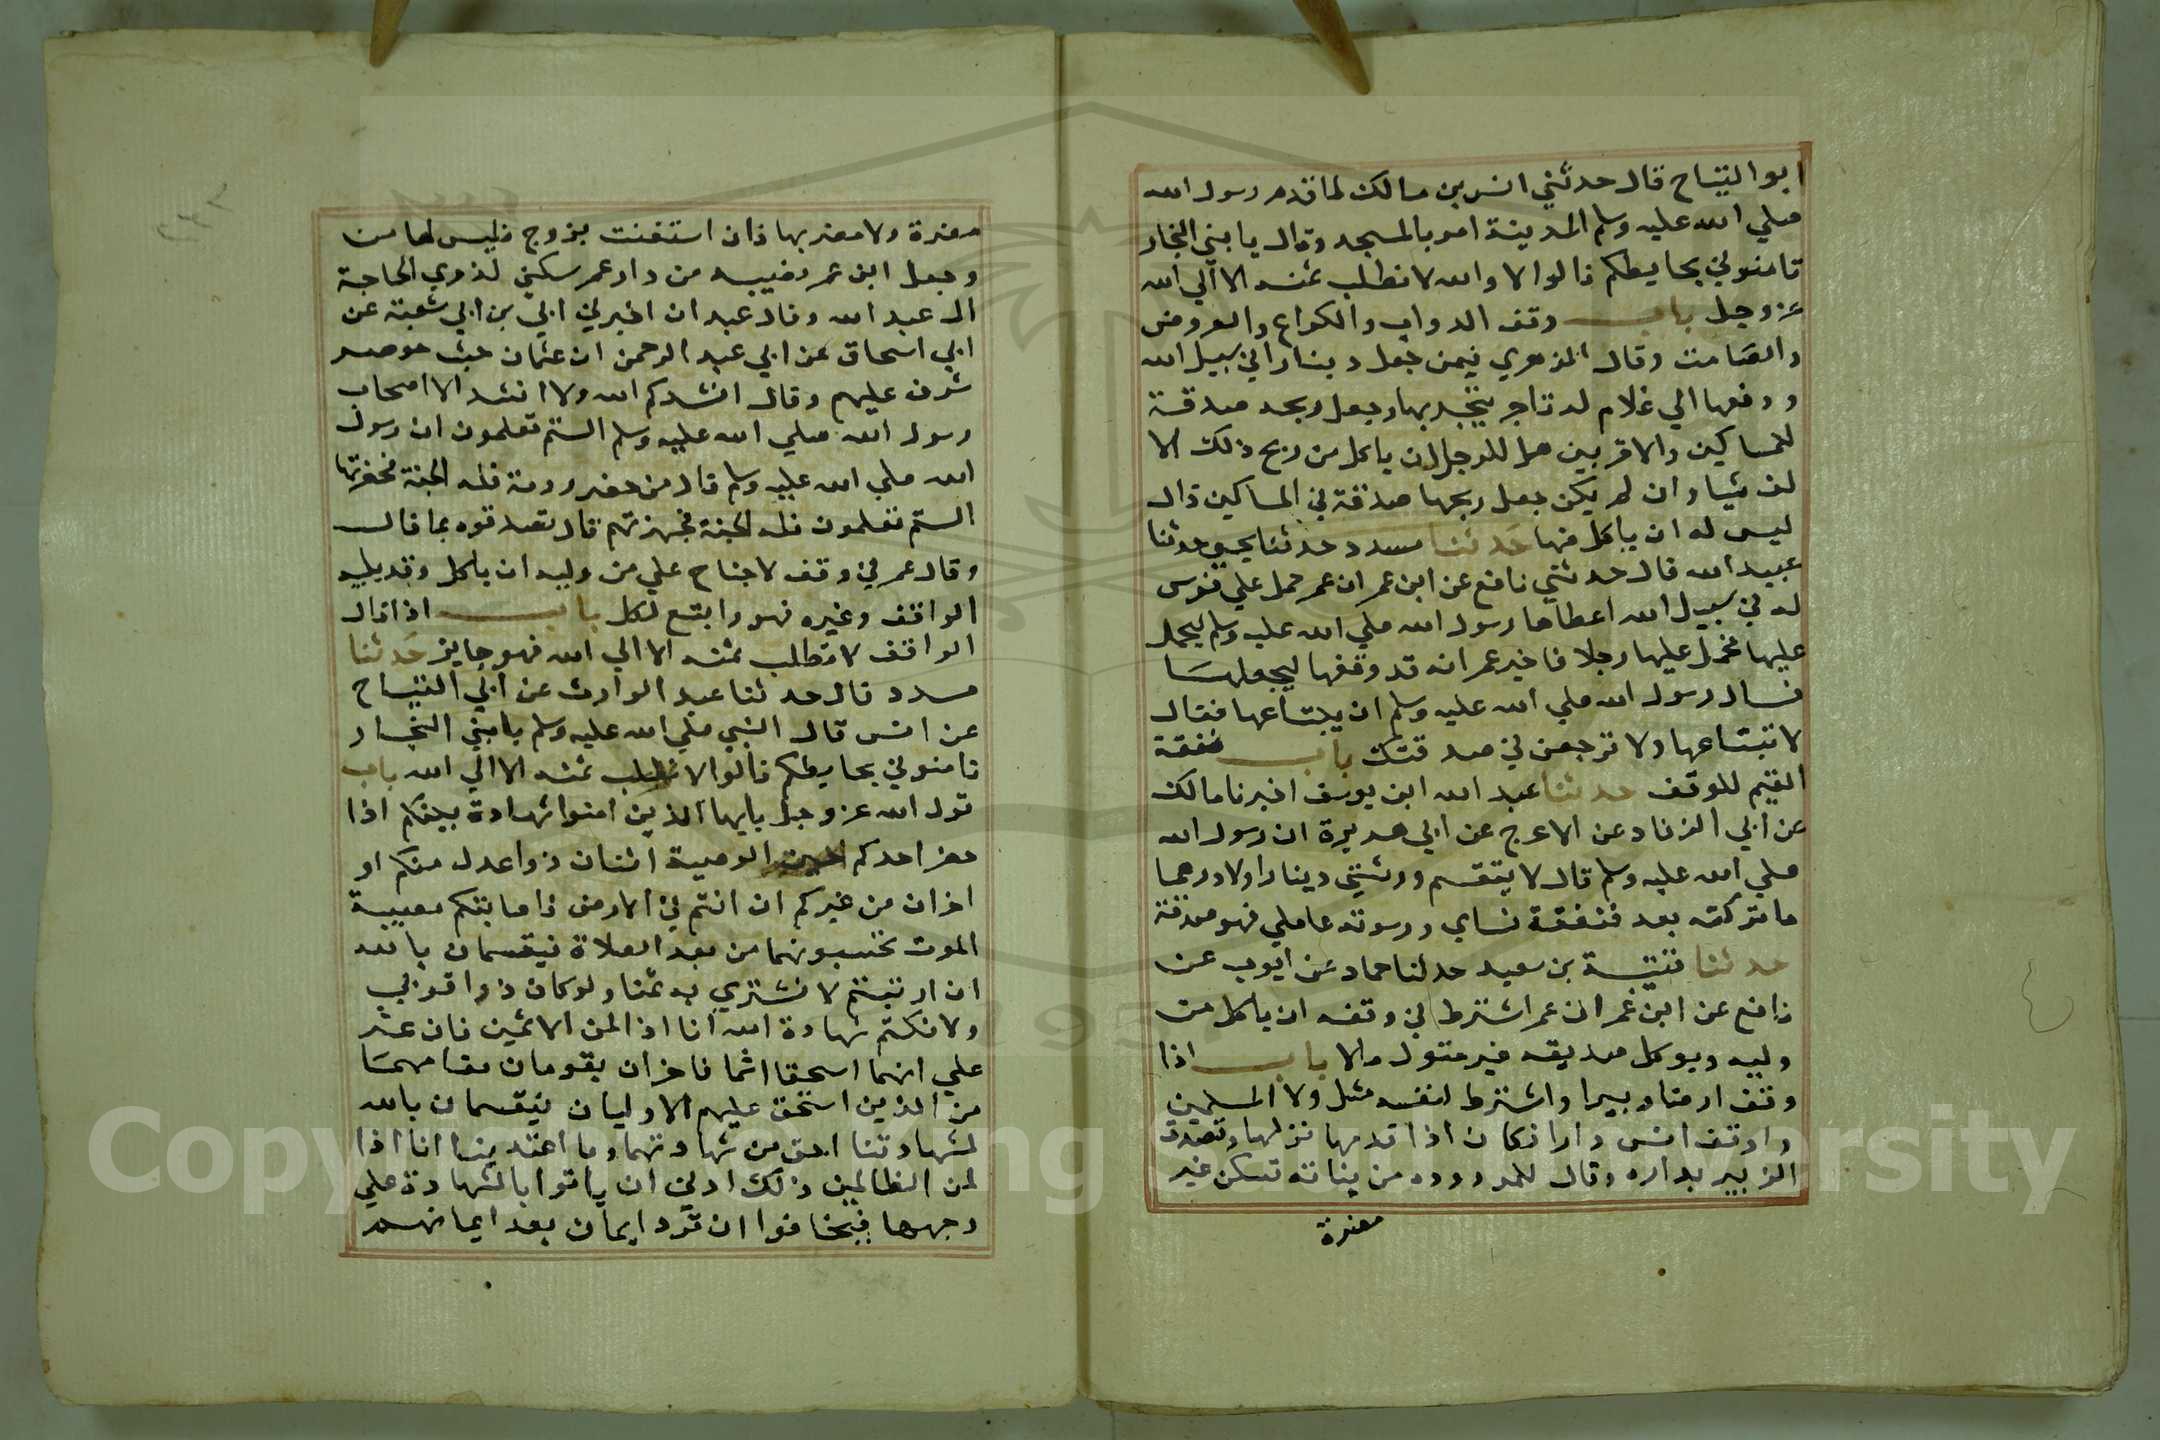 ابو التياح قال حدثني انس بن مالك لما قدم رسول الله
صلي الله عليه وسلم المدينة امر بالمسجد وقال يا بني النجار
ثامنوني بحايطكم قالوا لا والله لا نطلب ثمنه الا الي الله
عز وجل باب وقف الدواب والكراع والعروض
والصامت وقال الزهري فيمن جعل دينارا في سبيل الله
ودفعها الي غلام له تاجر يتجر بها وجعل ربحه صدقة
للمساكين والاقربين هل للرجل ان ياكل من ربح ذلك الا
لف شيا وان لم يكن جعل ربحها صدقة في المساكين قال
ليس له ان ياكل منها حدثنا مسدد حدثنا يحيي حدثنا
عبيد الله قال حدثني نافع عن ابن عمر ان عمر حمل علي فرس
له في سبيل الله اعطاها رسول الله صلي الله عليه وسلم ليحمل
عليها فحمل عليها رجلا فاخبر عمر انه قد وقفها ليجعلها
فسال رسول الله صلي الله عليه وسلم ان يبتاعها فقال
لا تبتاعها ولا ترجعن في صدقتك باب نفقة
القيم للوقف حدثنا عبد الله ابن يوسف اخبرنا مالك
عن ابي الزناد عن الاعرج عن ابي هريرة ان رسول الله
صلي الله عليه وسلم قال لا يقتسم ورثتي دينارا ولا درهما
ما تركت بعد نفقة نساي وموونة عاملي فهو صدقة
حدثنا قتيبة بن سعيد حدثنا حماد عن ايوب عن
نافع عن ابن عمر ان عمر اشترط في وقفه ان ياكل من
وليه ويوكل صديقه غير متمول مالا باب اذا
وقف ارضا او بيرا واشترط لنفسه مثل ولا المسلمين
واوقف انس دارا فكان اذا قدمها نزلها وتصدق
الزبير بداره وقال للمردوده من بناته تسكن غير
مضرة
مضرة ولا مضر بها فان استغنت بزوج فليس لها من
وجعل ابن عمر نصيبه من دار عمر سكني لذوي الحاجة
ال عبد الله وقال عبدان اخبرني ابي بن ابي شعبة عن
ابي اسحاق عن ابي عبد الرحمن ان عثمان حيث حوصر
شرف عليهم وقال انشدكم الله ولا انشد الا اصحاب
رسول الله صلي الله عليه وسلم الستم تعلمون ان رسول
الله صلي الله عليه وسلم قال من حفر رومة فله الجنة فحفرتها
الستم تعلمون فله الجنة فجهزتهم قال فصدقوه بما قال
وقال عمر في وقف لا جناح علي من وليه ان ياكل وقد يليه
الواقف وغيره فهو واسع لكل باب اذا قال
الواقف لا نطلب ثمنه الا الي الله فهو جايز حدثنا
مسدد قال حدثنا عبد الوارث عن ابي التياح
عن انس قال النبي صلي الله عليه وسلم يا بني النجار
ثامنوني بحايطكم قالوا لا نطلب ثمنه الا الي الله باب
قول الله عز وجل يايها الذين امنوا شهادة بينكم اذا
حضر احدكم الموت الوصية اثنان ذوا عدل منكم او
اخران من غيركم ان انتم في الارض فاصابتكم مصيبة
الموت تحبسونهما من بعد الصلاة فيقسمان بالله
ان ارتبتم لا نشتري به ثمنا ولو كان ذا قربي
ولا نكتم شهادة الله انا اذا لمن الاثمين فان عثر
علي انهما استحقا اثما فاخران يقومان مقامهما
من الذين استحق عليهم الاوليان فيقسمان بالله
لشهادتنا احق من شهادتهما وما اعتدينا انا اذا
لمن الظالمين ذلك ادني ان ياتوا بالشهادة علي
وجهها فيخافوا ان ترد ايمان بعد ايمانهم
Copy
ng S
ersity
195